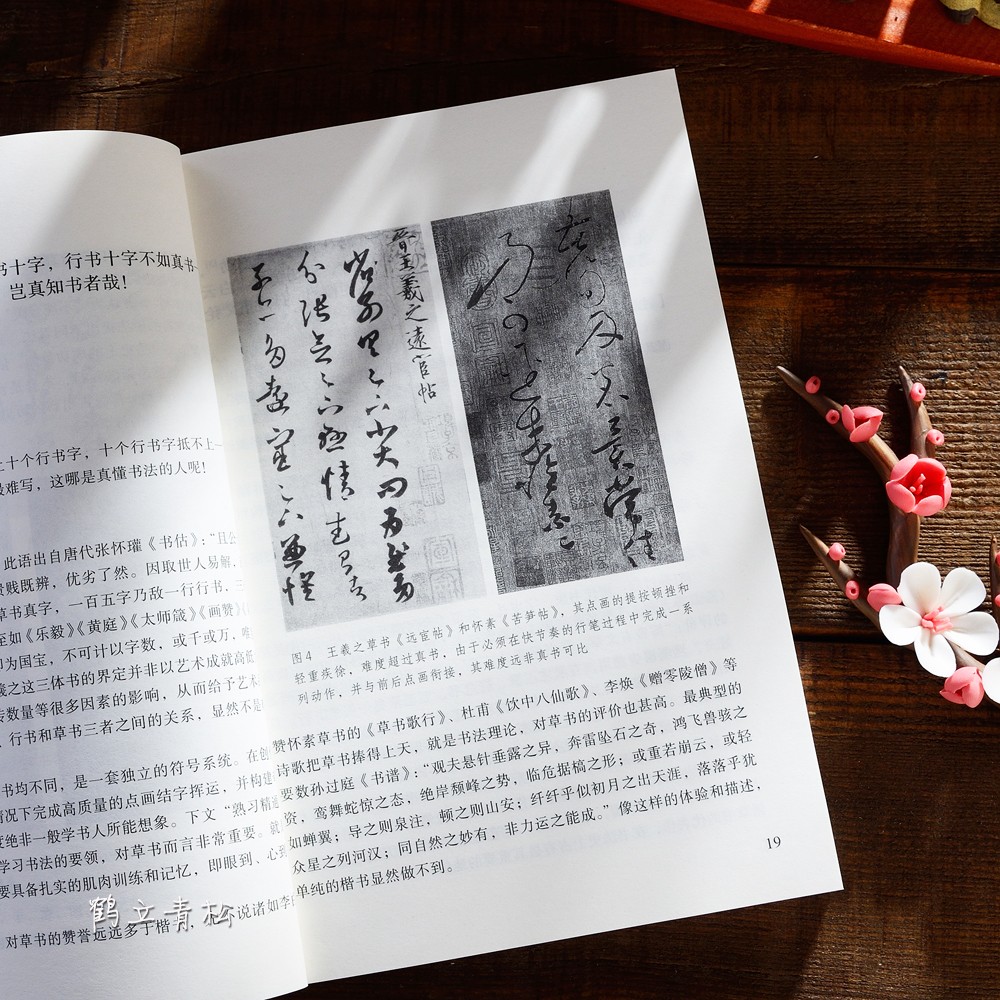 书十字，行书十字不如真书一
岂真知书者哉！
上十个行书字，十个行书字抵不上一
最难写，这哪是真懂书法的人呢！
此语出自唐代张怀瓘《书估》：“且公
贵贱既辨，优劣了然。因取世人易解，
草书真字，一百五字乃敌一行行书，三
至如《乐毅》《黄庭》《太师箴》《画赞》《
即为国宝，不可计以字数，或千或万，唯
羲之这三体书的界定并非以艺术成就高低
传数量等很多因素的影响，从而给予艺术
、行书和草书三者之间的关系，显然不是
书均不同，是一套独立的符号系统。在创
情况下完成高质量的点画结字挥运，并构建
度绝非一般学书人所能想象。下文“熟习精通
学习书法的要领，对草书而言非常重要。就
要具备扎实的肌肉训练和记忆，即眼到、心到
对草书的赞誉远远多于楷书，且不说诸如李
鹤立青松
晋王羲之远宦帖
省别具
足下小大问为慰多
分张念足下悬情武昌
诸子亦多远宦足下兼怀
苦笋及茗异常佳
乃可径来怀素上
图4 王羲之草书《远宦帖》和怀素《苦笋帖》，其点画的提按顿挫和
轻重疾徐，难度超过真书，由于必须在快节奏的行笔过程中完成一系
列动作，并与前后点画衔接，其难度远非真书可比
赞怀素草书的《草书歌行》、杜甫《饮中八仙歌》、李焕《赠零陵僧》等
诗歌把草书捧得上天，就是书法理论，对草书的评价也甚高。最典型的
要数孙过庭《书谱》：“观夫悬针垂露之异，奔雷坠石之奇，鸿飞兽骇之
资，鸾舞蛇惊之态，绝岸颓峰之势，临危据槁之形；或重若崩云，或轻
如蝉翼；导之则泉注，顿之则山安；纤纤乎似初月之出天涯，落落乎犹
众星之列河汉；同自然之妙有，非力运之能成。”像这样的体验和描述，
单纯的楷书显然做不到。
19